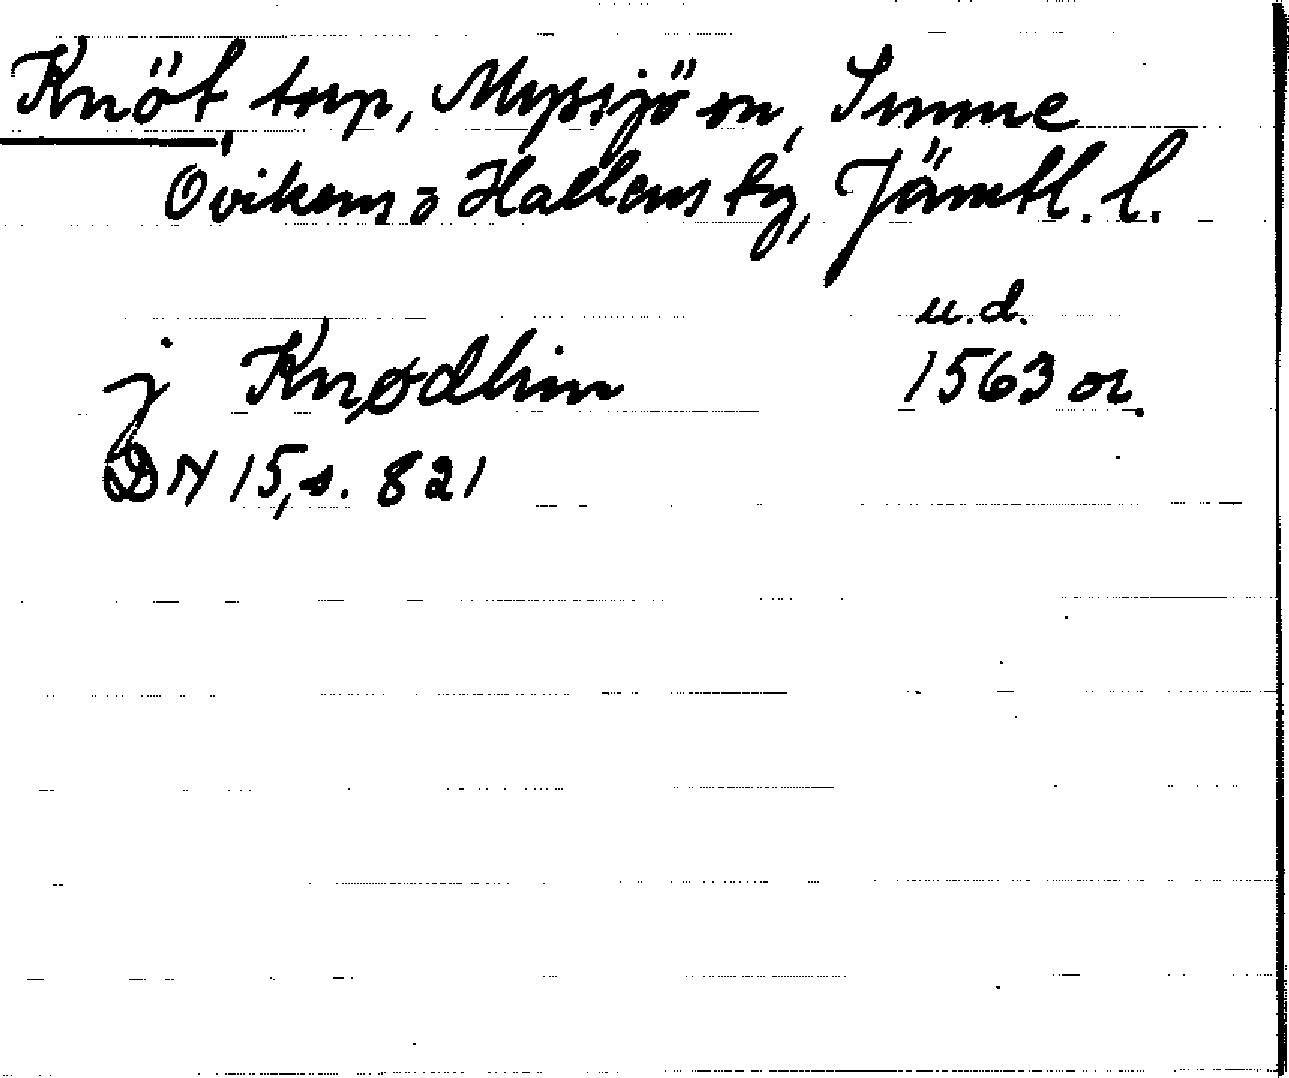 Knöt torp, Myssjö sn, Sunne
Ovikens o Hallens tg, Jämtl. l.
u.d.
j Knødhin 1563 or.
DN 15, s. 821